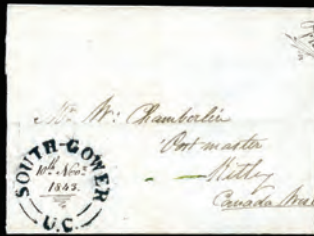 Mr W: Chamberlin
Post master
Kitley
Canada West
SOUTH-GOWER
10th Nov.
1843.
U.C.